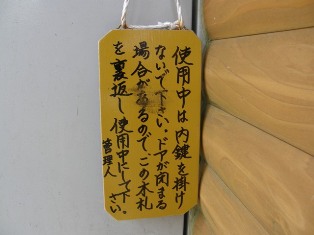 使用中は内鍵を掛け
ないで下さい。ドアが閉まる
場合があるので、この木札
を裏返し使用中にして下さい。
管理人